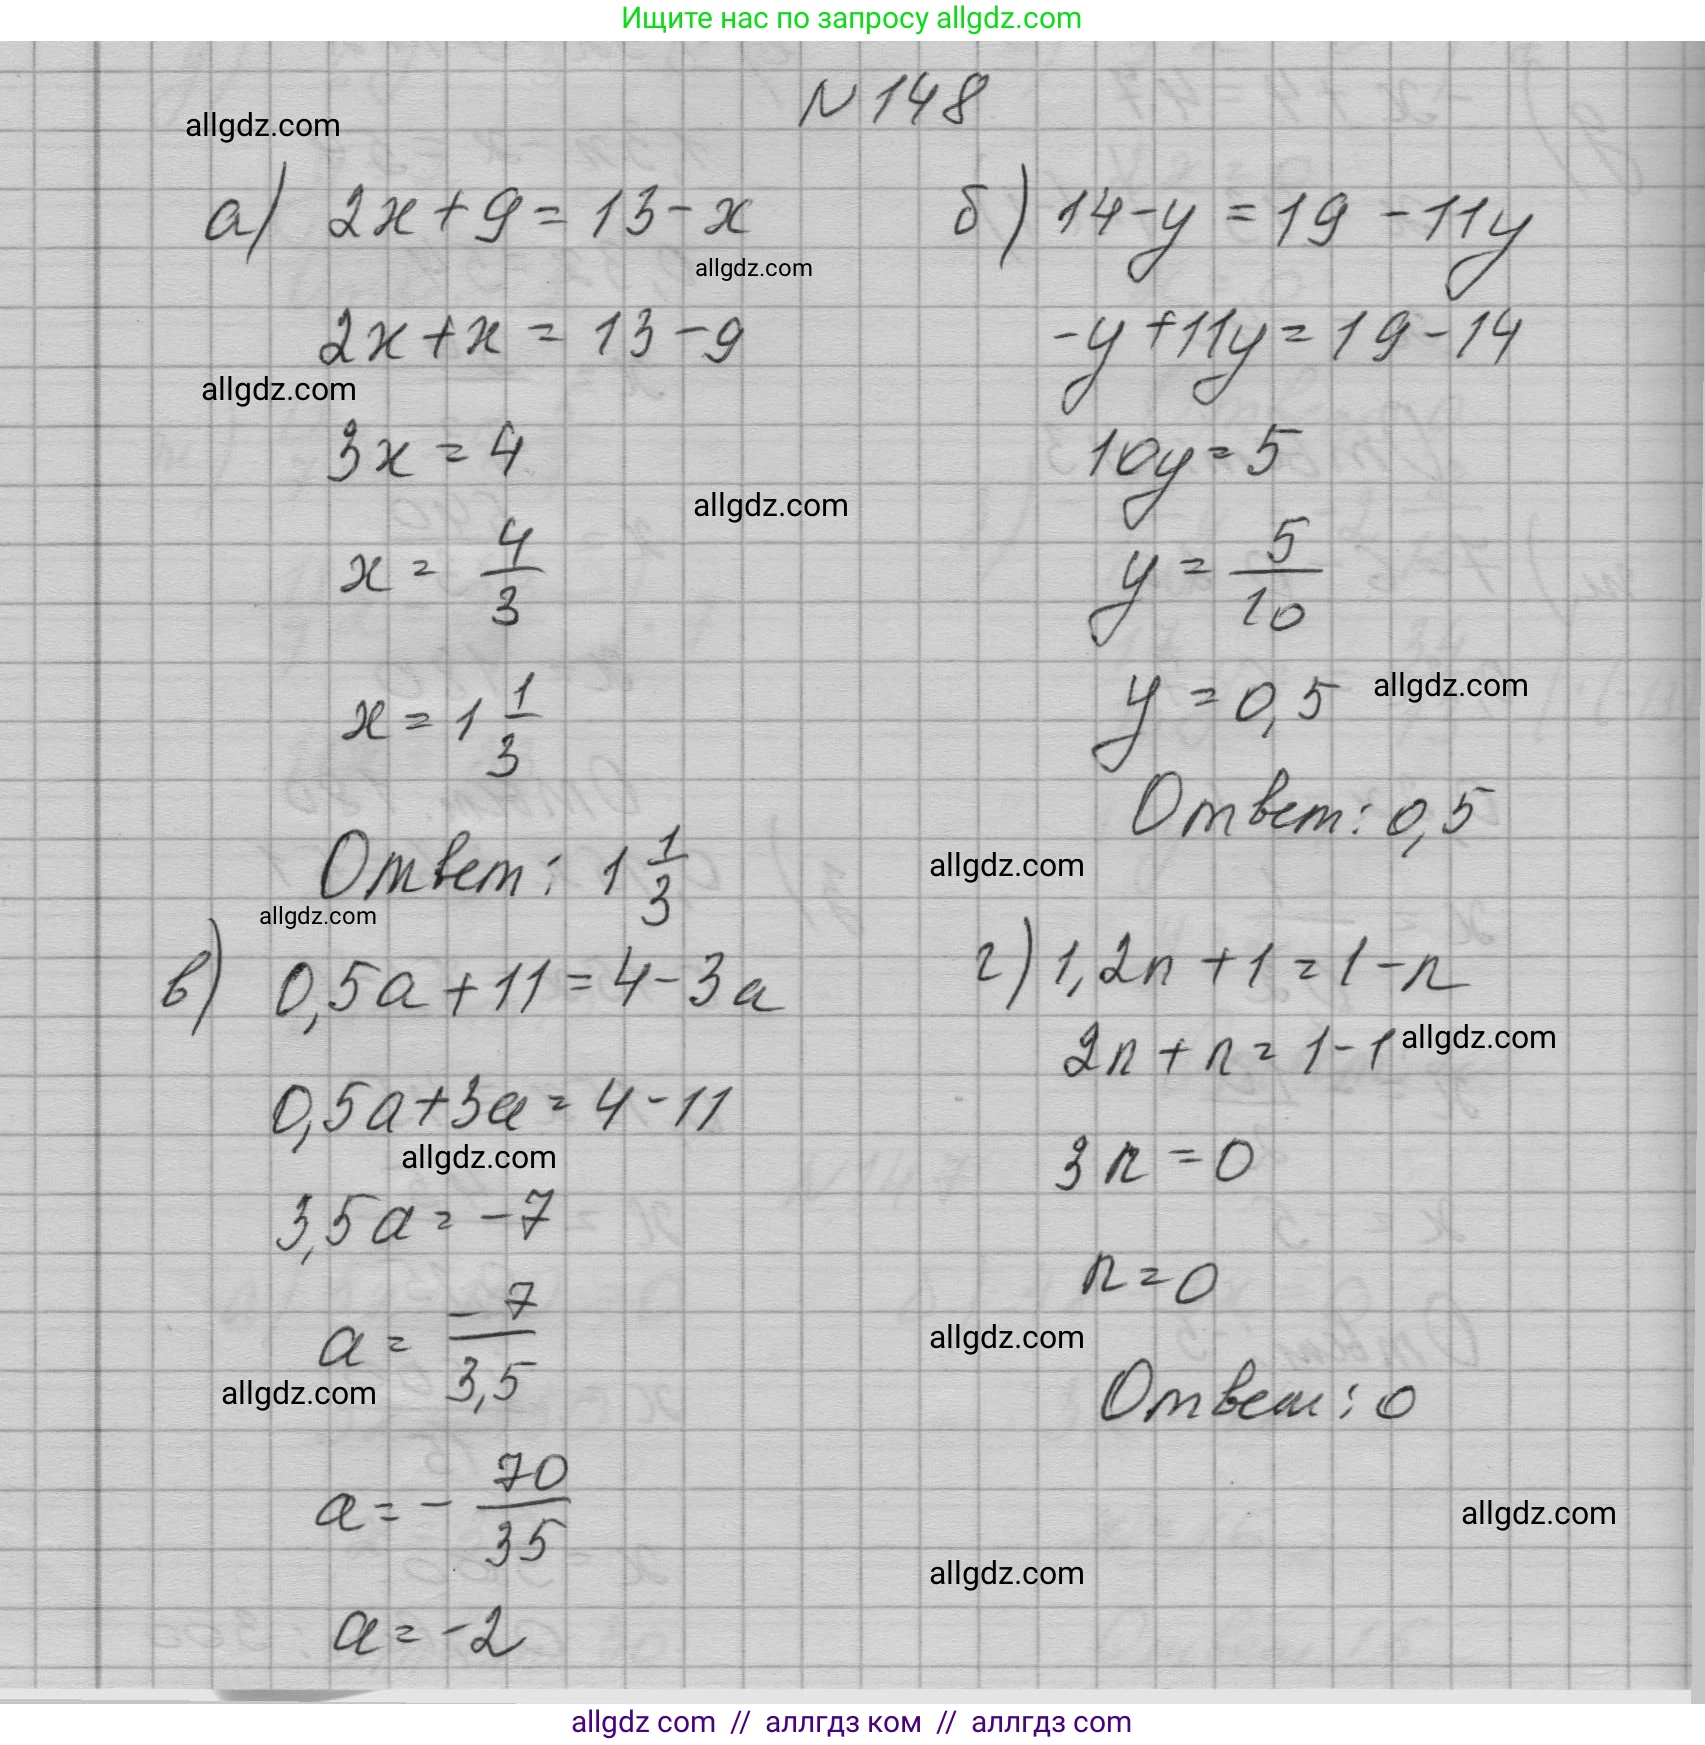 Ищите нас по запросу allgdz.com
N 148
allgdz.com
а) 2x + 9 = 13 - x
allgdz.com
2x + x = 13 - 9
allgdz.com
3x = 4
allgdz.com
x = 4/3
x = 1 1/3
Ответ: 1 1/3
allgdz.com
б) 14 - y = 19 - 11y
-y + 11y = 19 - 14
10y = 5
y = 5/10
y = 0,5
allgdz.com
Ответ: 0,5
allgdz.com
в) 0,5a + 11 = 4 - 3a
0,5a + 3a = 4 - 11
allgdz.com
3,5a = -7
a = -7/3,5
allgdz.com
a = - 70/35
a = -2
г) 1,2n + 1 = 1 - n
2n + n = 1 - 1
allgdz.com
3n = 0
n = 0
allgdz.com
Ответ: 0
allgdz.com
allgdz.com
allgdz com // аллгдз ком // аллгдз com